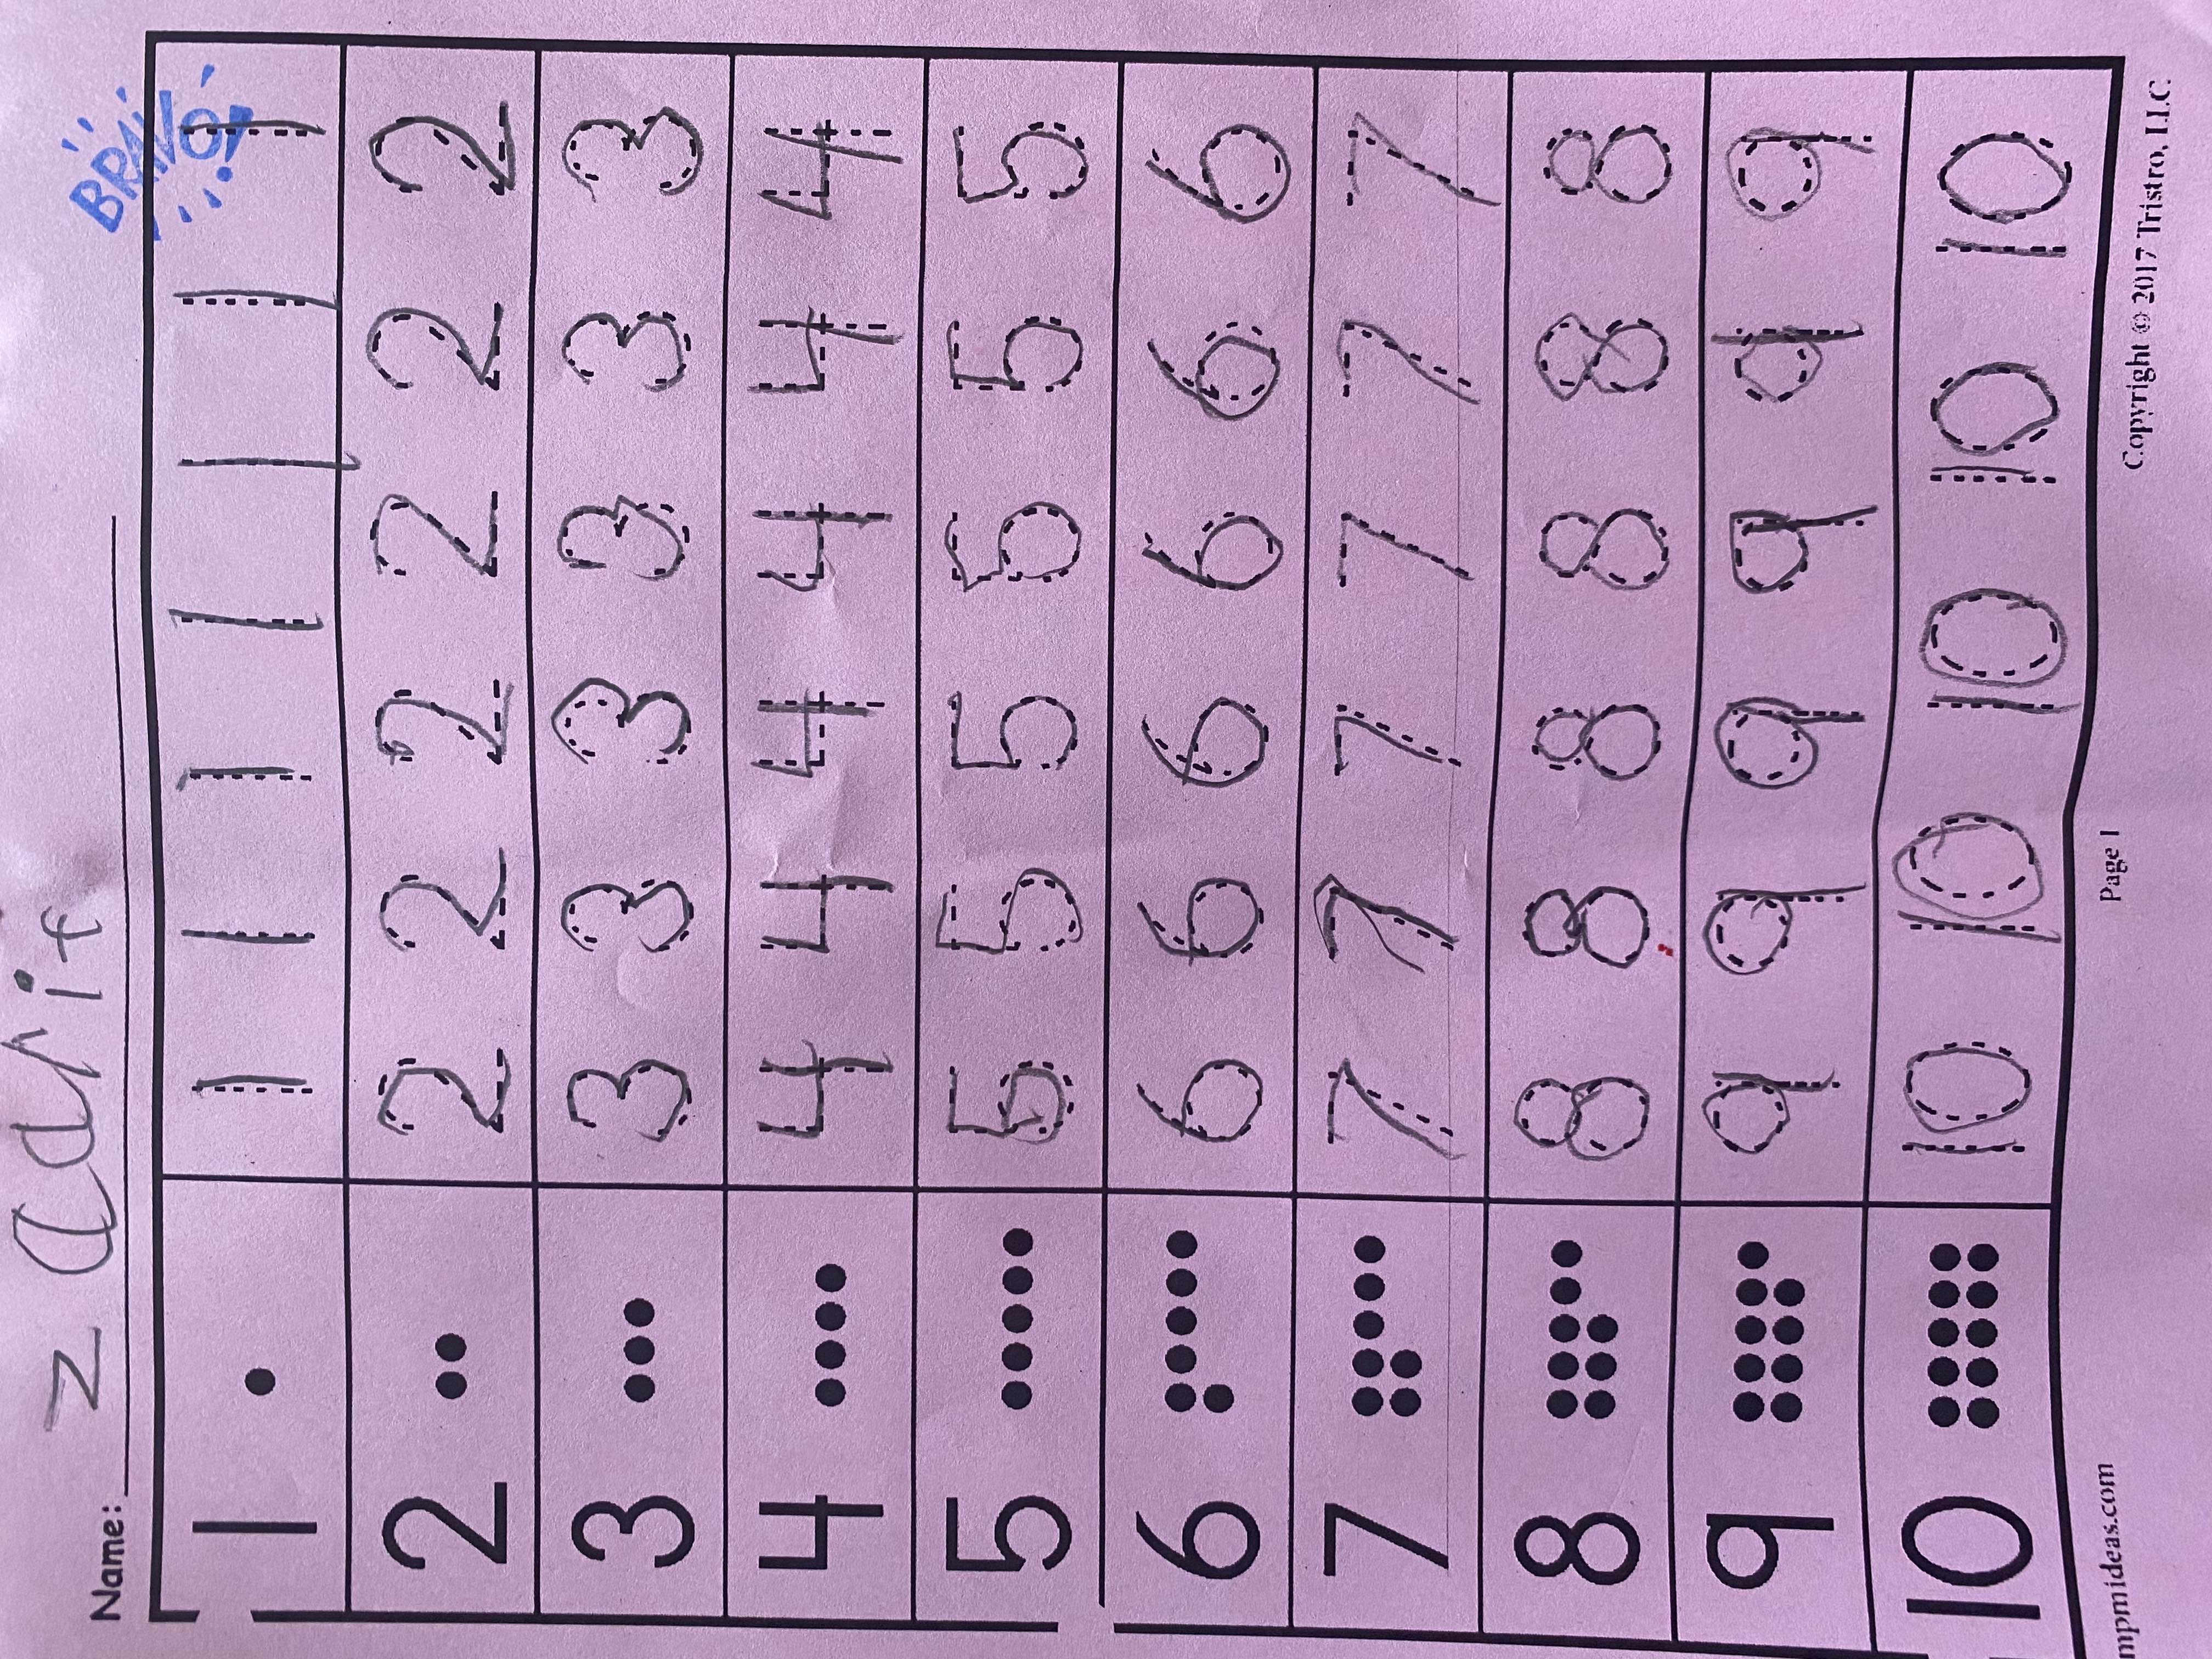 Name: zaarif
BRAVO!
1 1 1 1 1 1 1 1
2 2 2 2 2 2 2
3 3 3 3 3 3 3
4 4 4 4 4 4 4
5 5 5 5 5 5 5
6 6 6 6 6 6 6
7 7 7 7 7 7 7
8 8 8 8 8 8 8
9 9 9 9 9 9 9
10 10 10 10 10 10
mpmideas.com Page 1 Copyright © 2017 Tristro, LLC